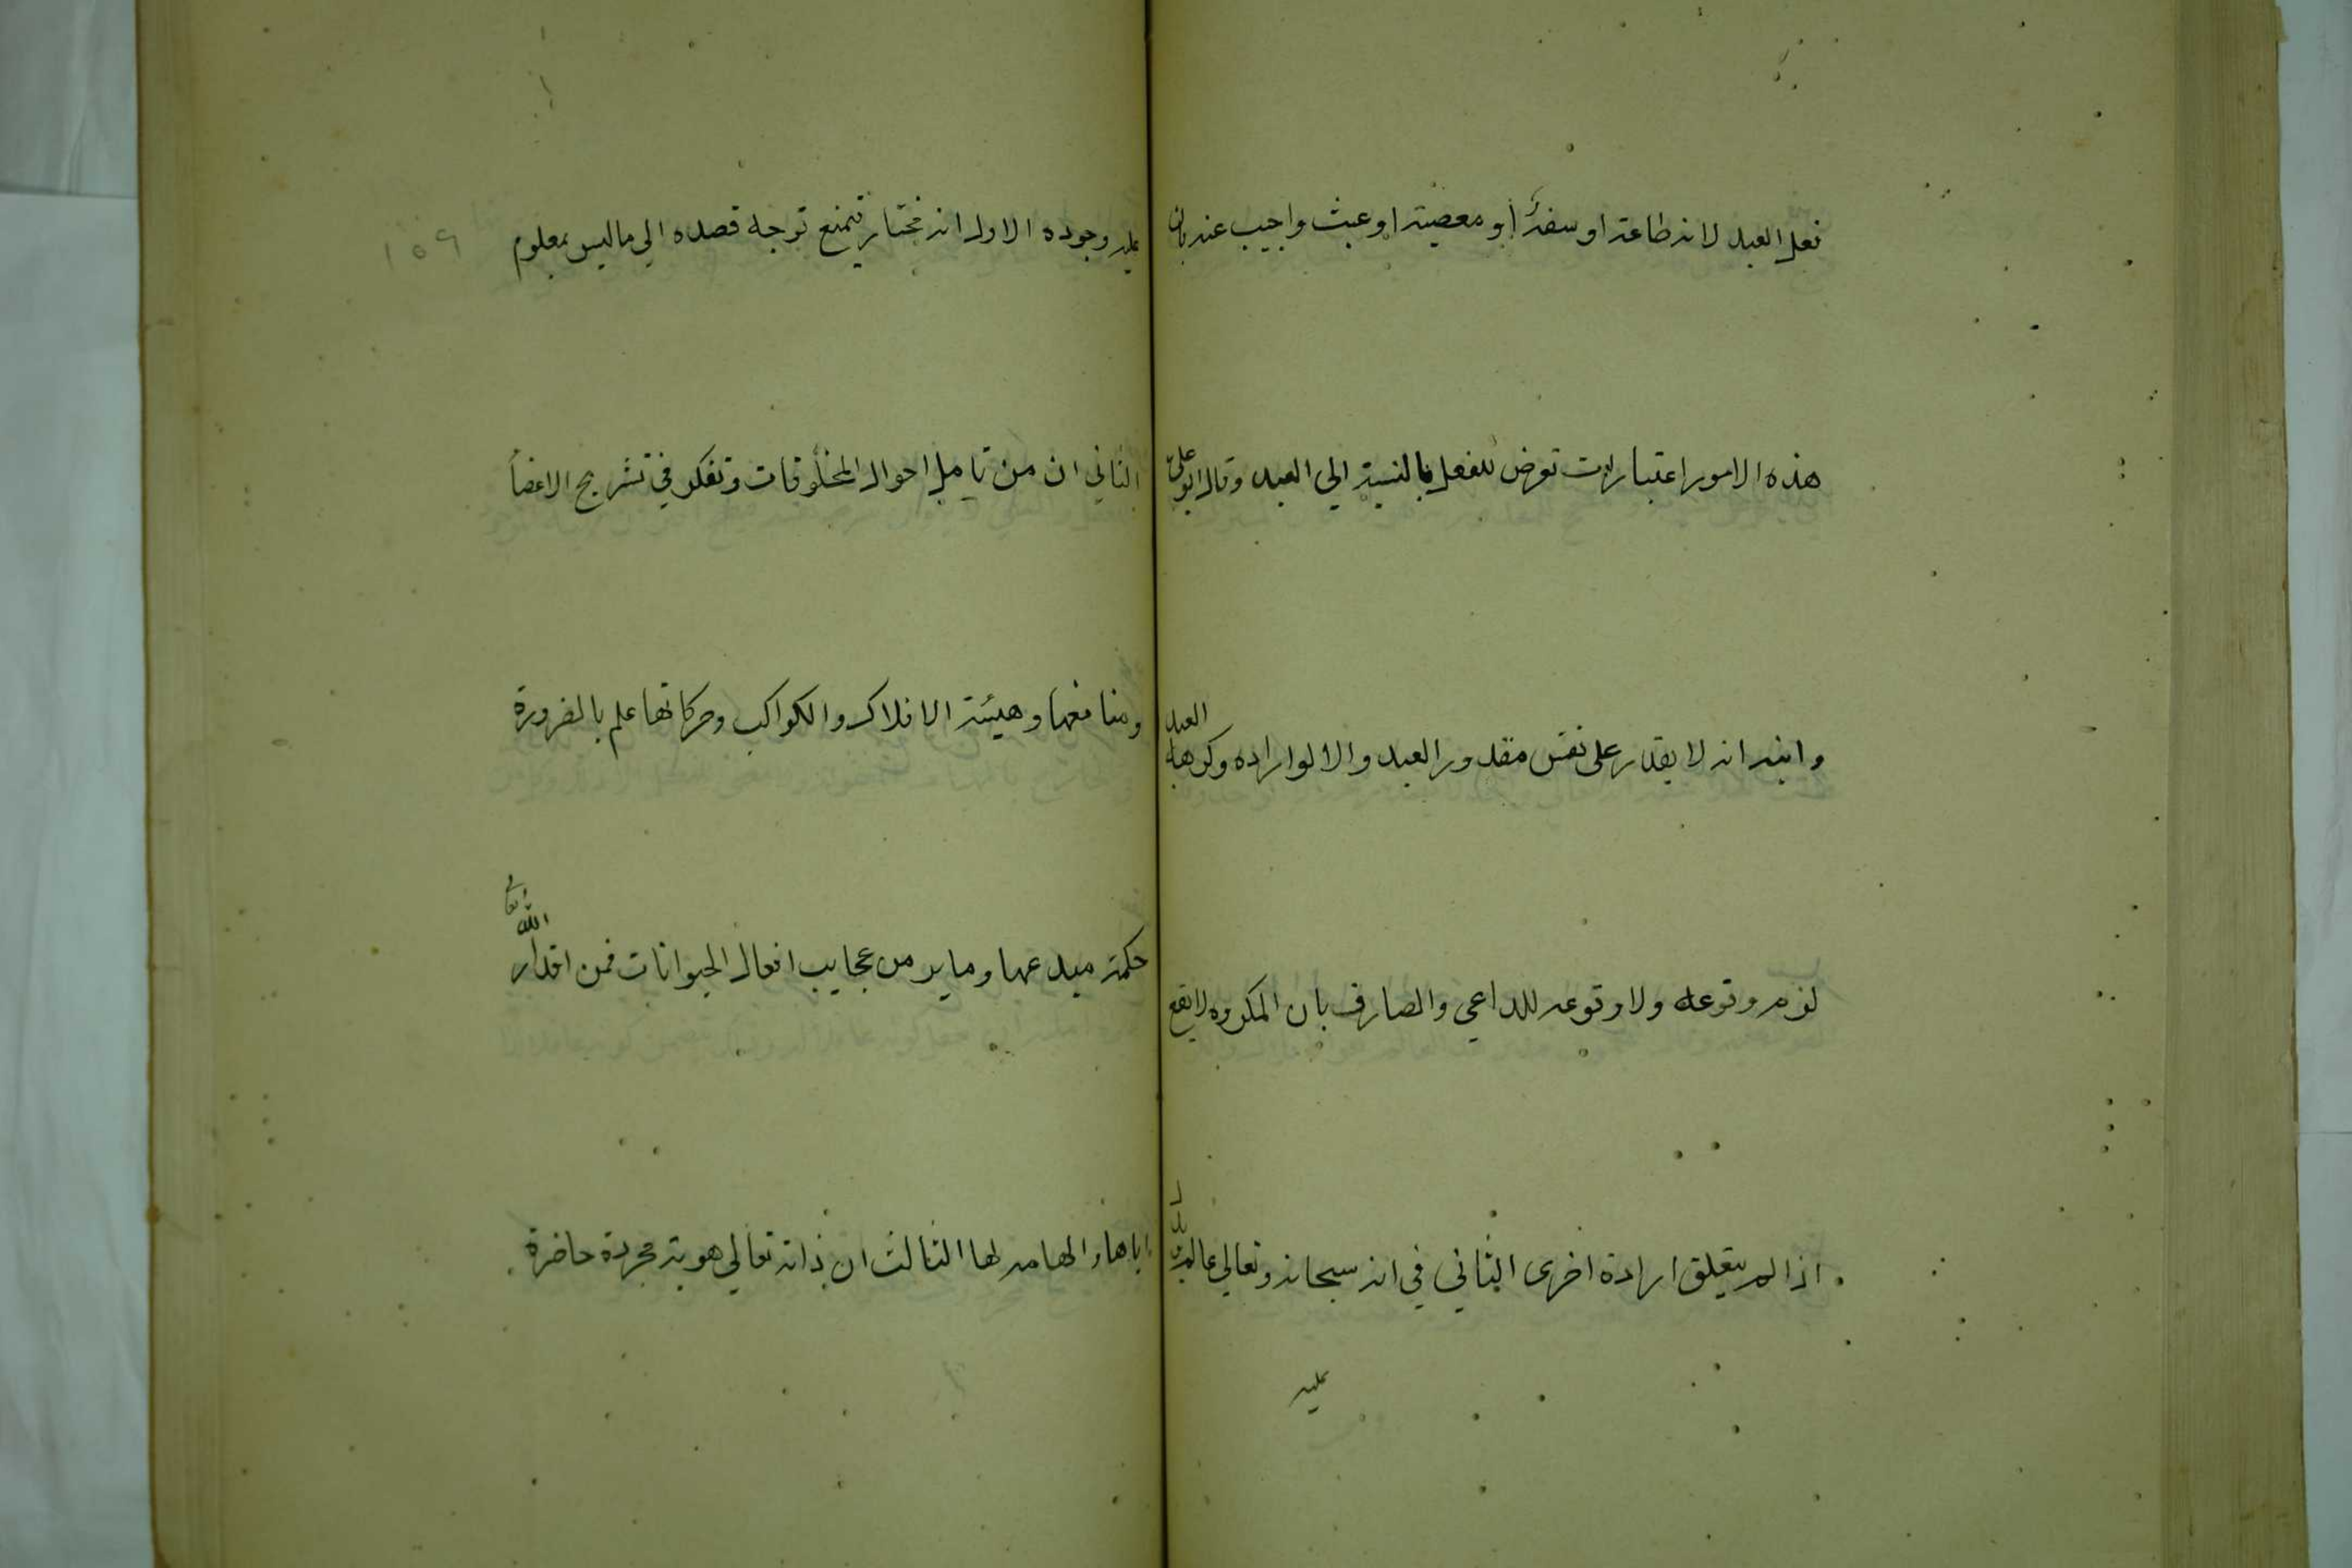 فعل العبد لانه طاعة او سفه او معصية او عبث واجيب عنه بان
هذه الامور اعتبارات تعرض للفعل بالنسبة الى العبد وقال ابو على
وابنه انه لا يقدر على نفس مقدور العبد والا لو اراده وكرهه العبد
لزم وقوعه ولا وقوعه للداعي والصارف بان المكروه لا يقع
اذا لم يتعلق ارادة اخرى الثاني في انه سبحانه وتعالى عالم يدل
عليه
عليه وجوده الاول انه مختار فيمتنع توجه قصده الي ما ليس بمعلوم
١٥٩
الثاني ان من تامل احوال المخلوقات وتفكر في تشريح الاعضا
ومنافعها وهيئة الافلاك والكواكب وحركاتها علم بالضرورة
حكمة مبدعها وما ير من عجايب افعال الحيوانات فمن اقدار الله تعا
اياها والهامه لها الثالث ان ذاته تعالي هوية مجردة حاضرة